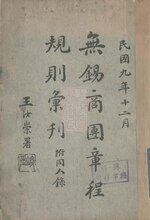 民國九年十二月
無錫商團章程
規則彙刊
附同人錄
王汝崇署